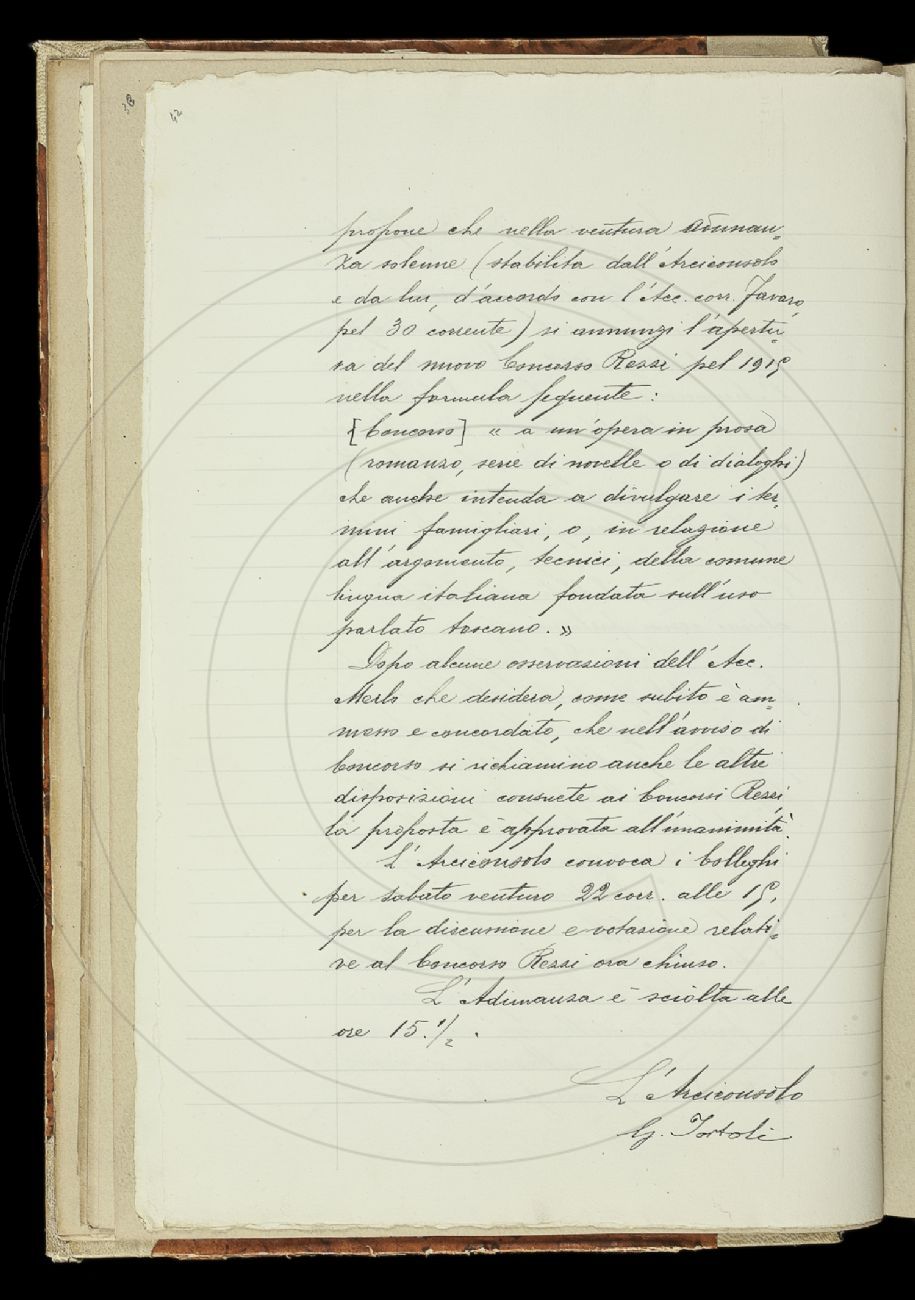 38
42
propone che nella ventura adunan-
za solenne (stabilita dall'Arciconsolo
e da lui, d'accordo con l'Acc. corr. Favaro,
pel 30 corrente) si annunzi l'apertu-
ra del nuovo Concorso Rezzi pel 1915
nella formula seguente:
[Concorso] « a un'opera in prosa
(romanzo, serie di novelle o di dialoghi)
che anche intenda a divulgare i ter-
mini famigliari, o, in relazione
all'argomento, tecnici, della comune
lingua italiana fondata sull'uso
parlato toscano. »
Dopo alcune osservazioni dell'Acc.
Merlo che desidera, come subito è am-
messo e concordato, che nell'avviso di
Concorso si richiamino anche le altre
disposizioni consuete ai Concorsi Rezzi,
la proposta è approvata all'unanimità.
L'Arciconsolo convoca i Colleghi
per sabato venturo 22 corr. alle 15,
per la discussione e votazione relati-
ve al Concorso Rezzi ora chiuso.
L'Adunanza è sciolta alle
ore 15.1/2.
L'Arciconsolo
G. Tortoli